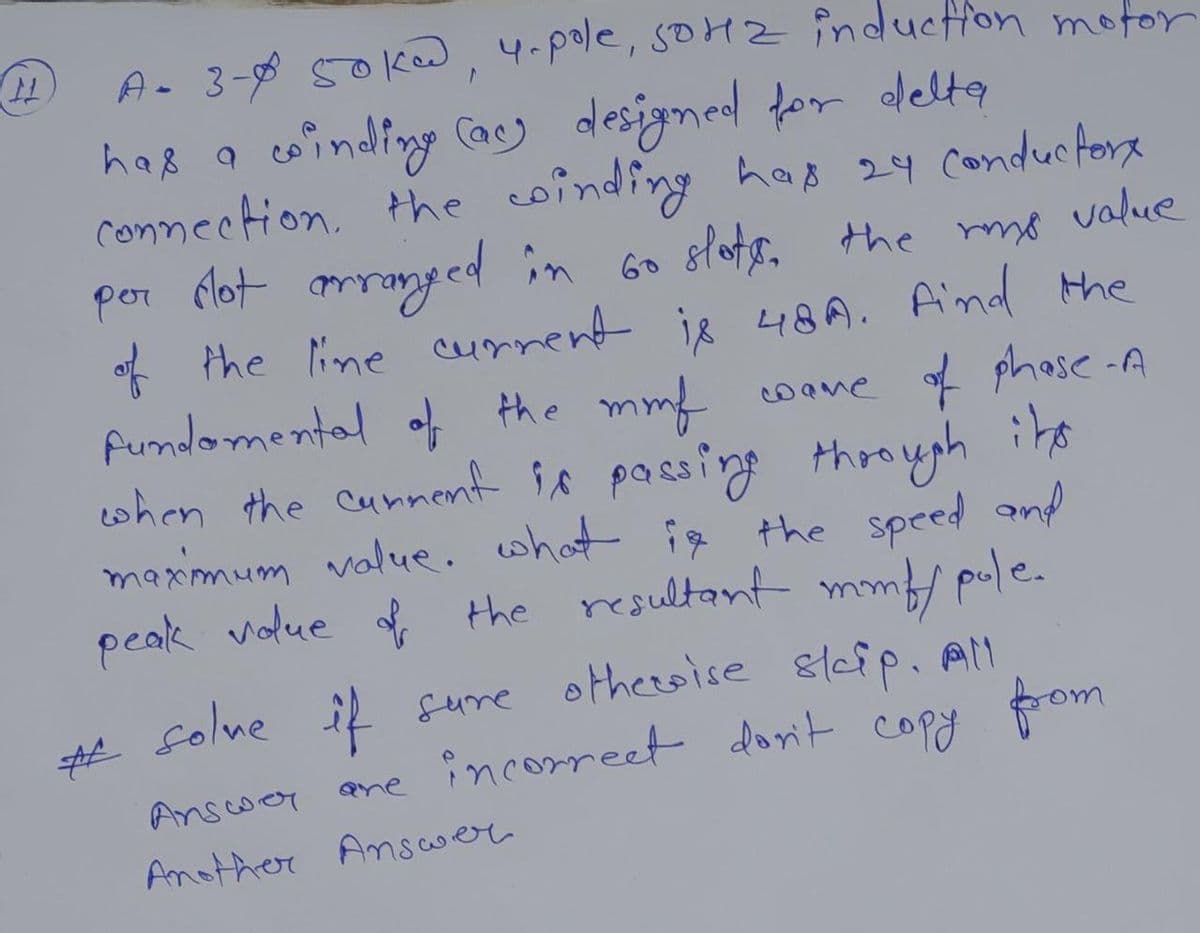 11 A- 3-φ 50kw, 4-pole, 50Hz induction motor
has a winding (ac) designed for delta
connection. the winding has 24 conductors
per slot arranged in 60 slots. the rms value
of the line current is 48A. find the
fundamental of the mmf wave of phase-A
when the current is passing through its
maximum value. what is the speed and
peak value of the resultant mmf/pole.
# solve if sure otherwise skip. All
Answer are incorrect don't copy from
Another Answer